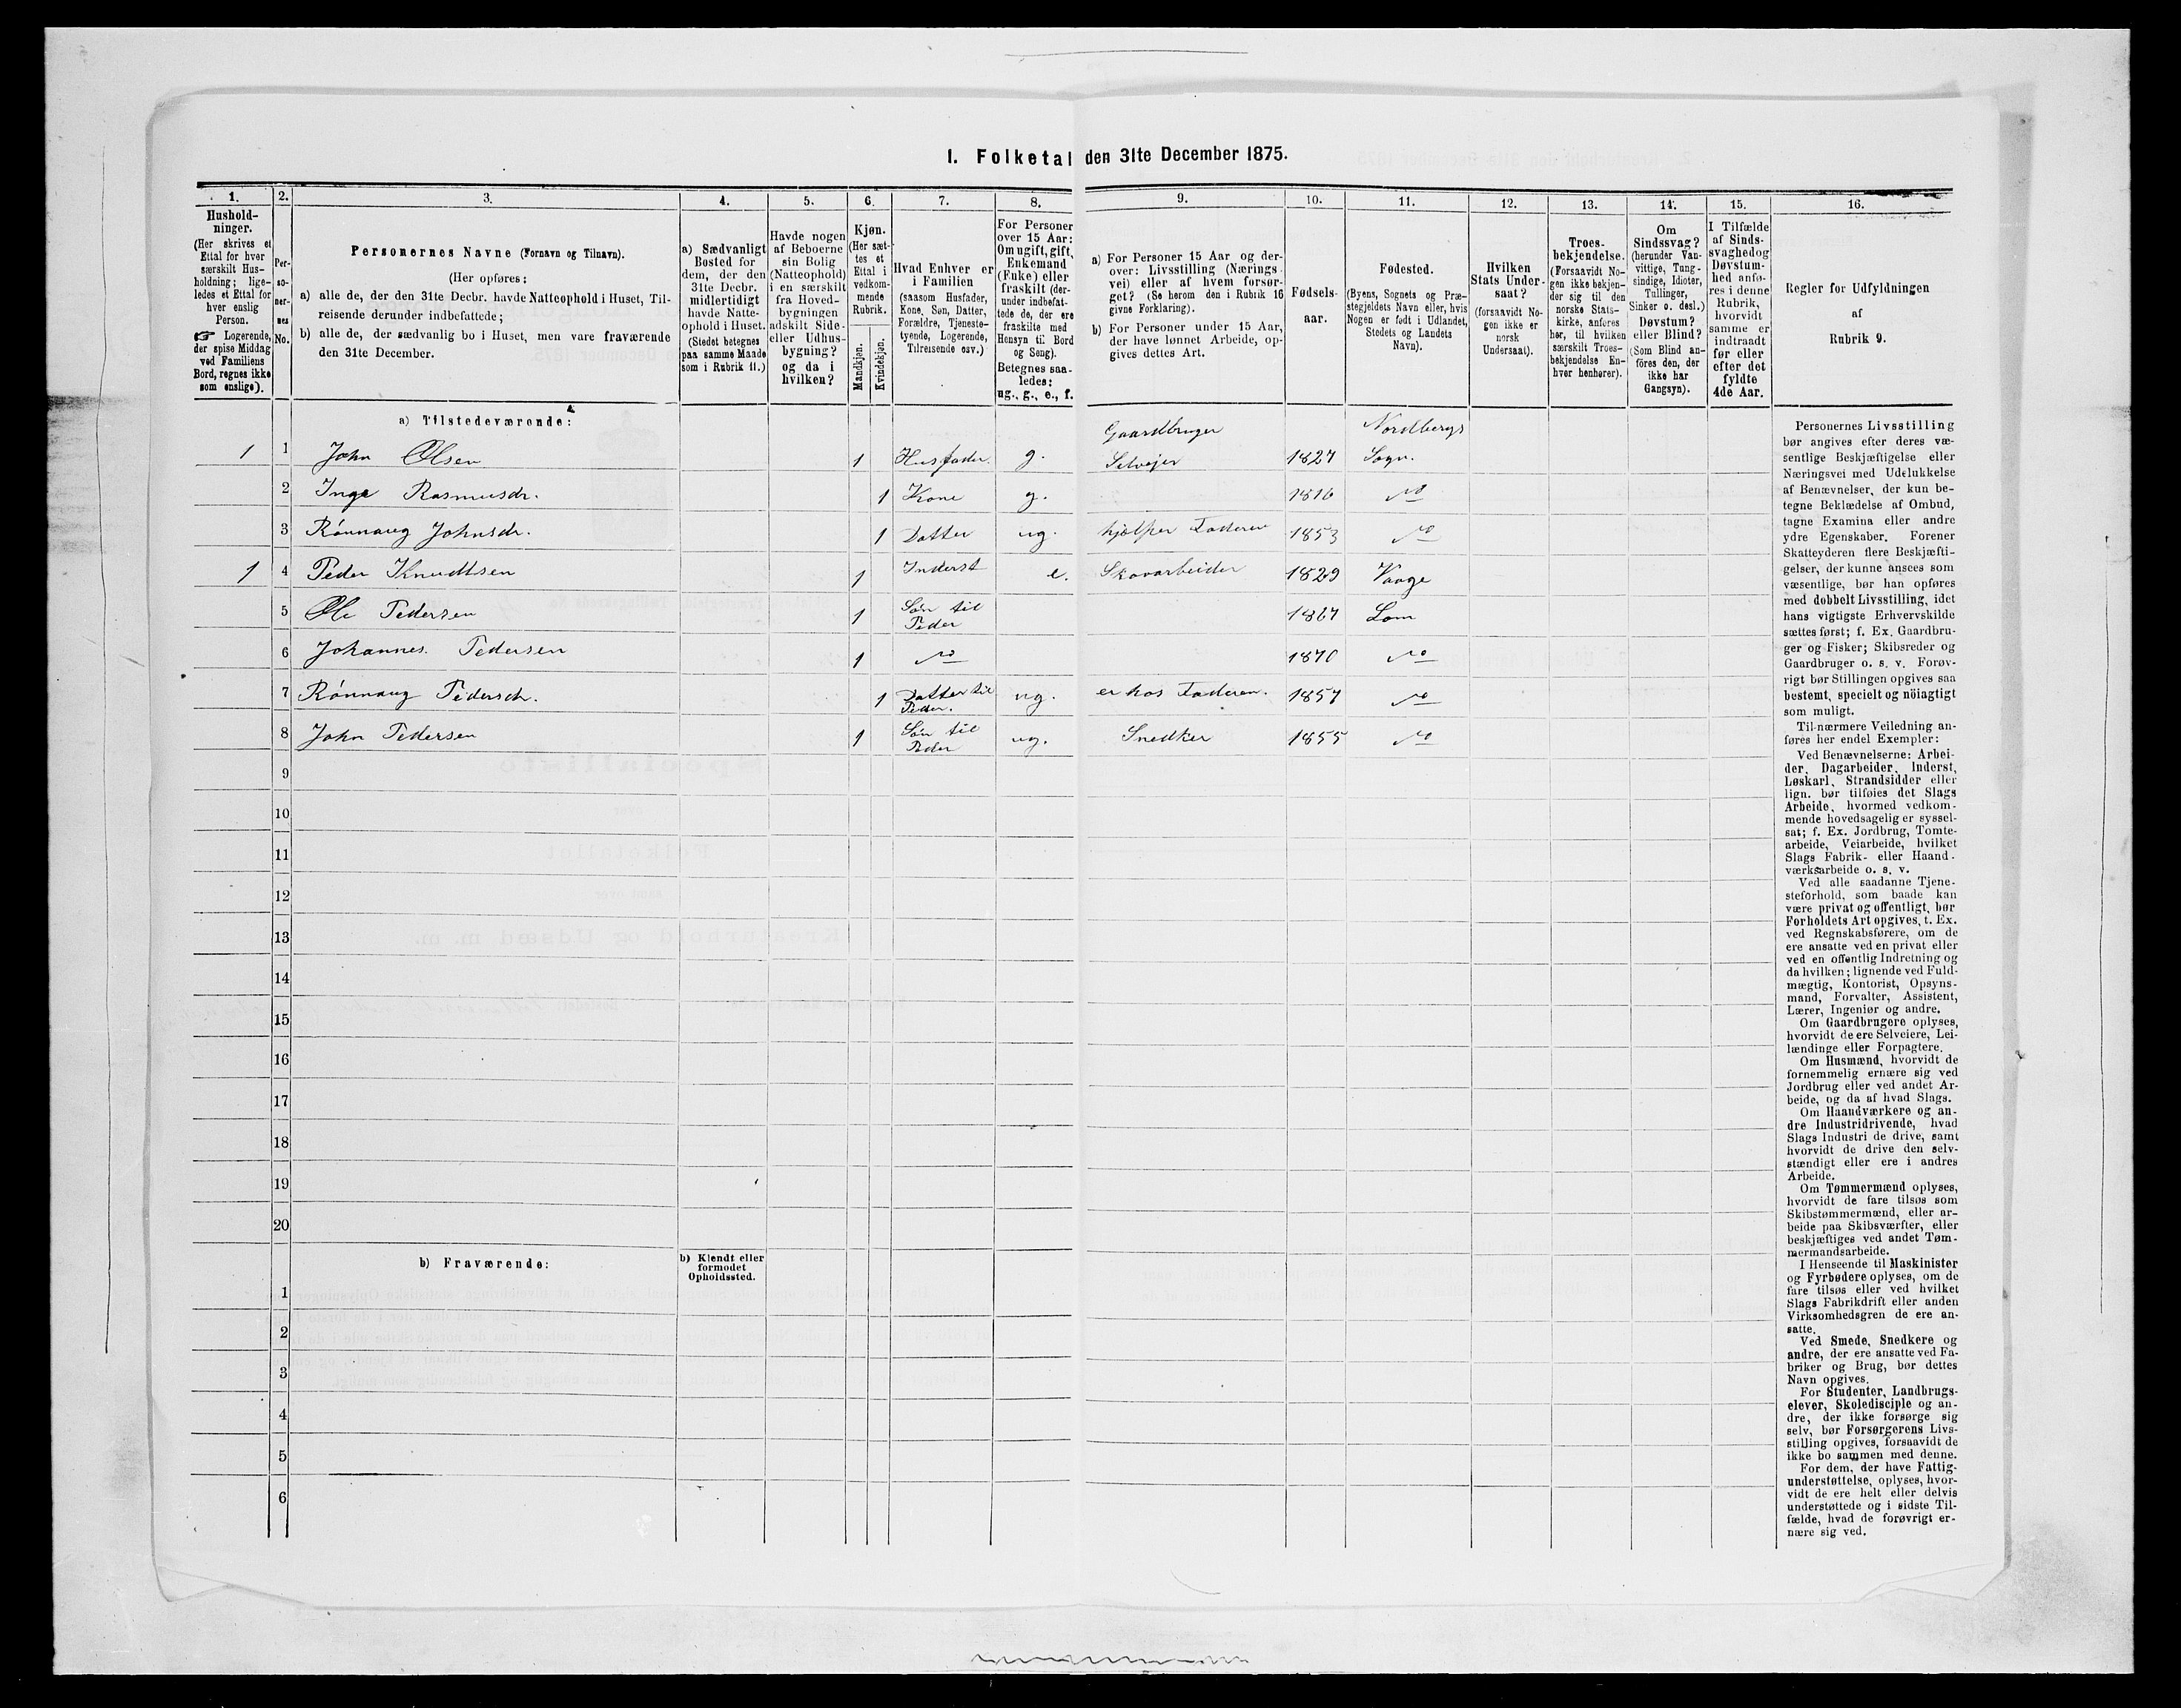 1. Folketal den 31te December 1875.
1.
Hushold-
ninger.
(Her skrives et
Ettal for hver
særskilt Hus-
holdning; lige-
ledes et Ettal for
hver enslig
Person.
☞ Logerende,
der spise Middag
ved Familiens
Bord, regnes ikke
som enslige).
2.
Per-
so-
ner-
nes
No.
3.
Personernes Navne (Fornavn og Tilnavn).
(Her opføres:
a) alle de, der den 31te Decbr. havde Natteophold i Huset, Til-
reisende derunder indbefattede;
b) alle de, der sædvanlig bo i Huset, men vare fraværende
den 31te December.
4.
a) Sædvanligt
Bosted for
dem, der den
31te Decbr.
midlertidigt
havde Natte-
ophold i Huset.
(Stedet betegnes
paa samme Maade
som i Rubrik 11.)
5.
Havde nogen
af Beboerne
sin Bolig
(Natteophold)
i en særskilt
fra Hoved-
bygningen
adskilt Side-
eller Udhus-
bygning?
og da i
hvilken?
6.
Kjøn.
(Her sæt-
tes et
Ettal i
vedkom-
mende
Rubrik.
Mandkjøn.
Kvindekjøn.
7.
Hvad Enhver er
i Familien
(saasom Husfader,
Kone, Søn, Datter,
Forældre, Tjeneste-
tyende, Logerende,
Tilreisende osv.)
8.
For Personer
over 15 Aar:
Om ugift, gift,
Enkemand
(Enke) eller
fraskilt (der-
under indbefat-
tede de, der ere
fraskilte med
Hensyn til Bord
og Seng).
Betegnes saa-
ledes:
ug., g., e., f.
9.
a) For Personer 15 Aar og der-
over: Livsstilling (Nærings-
vei) eller af hvem forsør-
get? (Se herom den i Rubrik 16
givne Forklaring).
b) For Personer under 15 Aar,
der have lønnet Arbeide, op-
gives dettes Art.
10.
Fødsels-
aar.
11.
Fødested.
(Byens, Sognets og Præ-
stegjeldets Navn eller, hvis
Nogen er født i Udlandet,
Stedets og Landets
Navn).
12.
Hvilken
Stats Under-
saat?
(forsaavidt No-
gen ikke er
norsk
Undersaat).
13.
Troes-
bekjendelse.
(Forsaavidt No-
gen ikke bekjen-
der sig til den
norske Stats-
kirke, anføres
her, til hvilken
særskilt Troes-
bekjendelse En-
hver henhører).
14.
Om
Sindssvag?
(herunder Van-
vittige, Tung-
sindige, Idioter,
Tullinger,
Sinker o. desl.)
Døvstum?
eller Blind?
(Som Blind an-
föres den, der
ikke har
Gangsyn).
15.
I Tilfælde
af Sinds-
svaghed og
Døvstum-
hed anfø-
res i denne
Rubrik,
hvorvidt
samme er
indtraadt
før eller
efter det
fyldte
4de Aar.
16.
Regler for Udfyldningen
af
Rubrik 9.
a) Tilstedeværende:
1 1 John Olsen 1 Husfader g. Gaardbruger Selvejer 1827 Nordbergs Sogn.
2 Inge Rasmusdr. 1 Kone g. 1816 do
3 Rønnaug Johnsdr. 1 Datter ug. hjælper Faderen 1853 do
1 4 Peder Knudtsen 1 Inderst e. Skovarbeider 1829 Vaage
5 Ole Pedersen 1 Søn til Peder 1867 Lom
6 Johannes Pedersen 1 do 1870 do
7 Rønnaug Pedersdr. 1 Datter til Peder. ug. er hos Faderen. 1857 do
8 John Pedersen 1 Søn til Peder ug. Snedker 1855 do
9
10
11
12
13
14
15
16
17
18
19
20
b) Fraværende:
b) Kjendt eller
formodet
Opholdssted.
1
2
3
4
5
6
Personernes Livsstilling
bør angives efter deres væ-
sentlige Beskjæftigelse eller
Næringsvei med Udelukkelse
af Benævnelser, der kun be-
tegne Beklædelse af Ombud,
tagne Examina eller andre
ydre Egenskaber. Forener
Skatteyderen flere Beskjæfti-
gelser, der kunne ansees som
væsentlige, bør han opføres
med dobbelt Livsstilling, idet
hans vigtigste Erhvervskilde
sættes først; f. Ex. Gaardbru-
ger og Fisker; Skibsreder og
Gaardbruger o. s. v. Forøv-
rigt bør Stillingen opgives saa
bestemt, specielt og nöiagtigt
som muligt.
Til nærmere Veiledning an-
føres her endel Exempler:
Ved Benævnelserne: Arbei-
der, Dagarbeider, Inderst,
Løskarl, Strandsidder eller
lign. bør tilføies det Slags
Arbeide, hvormed vedkom-
mende hovedsagelig er syssel-
sat; f. Ex. Jordbrug, Tomte-
arbeide, Veiarbeide, hvilket
Slags Fabrik- eller Haand-
værksarbeide o. s. v.
Ved alle saadanne Tjene-
steforhold, som baade kan
være privat og offentligt, bør
Forholdets Art opgives, t. Ex.
ved Regnskabsførere, om de
ere ansatte ved en privat eller
ved en offentlig Indretning og
da hvilken; lignende ved Fuld-
mægtig, Kontorist, Opsyns-
mand, Forvalter, Assistent,
Lærer, Ingeniør og andre.
Om Gaardbrugere oplyses,
hvorvidt de ere Selveiere, Lei-
lændinge eller Forpagtere.
Om Husmænd, hvorvidt de
fornemmelig ernære sig ved
Jordbrug eller ved andet Ar-
beide, og da af hvad Slags.
Om Haandværkere og an-
dre Industridrivende, hvad
Slags Industri de drive, samt
hvorvidt de drive den selv-
stændigt eller ere i andres
Arbeide.
Om Tømmermænd oplyses,
hvorvidt de fare tilsøs som
Skibstømmermænd, eller ar-
beide paa Skibsværfter, eller
beskjæftiges ved andet Tøm-
mermandsarbeide.
I Henseende til Maskinister
og Fyrbødere oplyses, om de
fare tilsøs eller ved hvilket
Slags Fabrikdrift eller anden
Virksomhedsgren de ere an-
satte.
Ved Smede, Snedkere og
andre, der ere ansatte ved Fa-
briker og Brug, bør dettes
Navn opgives.
For Studenter, Landbrugs-
elever, Skoledisciple og an-
dre, der ikke forsørge sig
selv, bør Forsørgerens Livs-
stilling opgives, forsaavidt de
ikke bo sammen med denne.
For dem, der have Fattig-
understøttelse, oplyses, hvor-
vidt de ere helt eller delvis
understøttede og i sidste Til-
fælde, hvad de forøvrigt er-
nære sig ved.